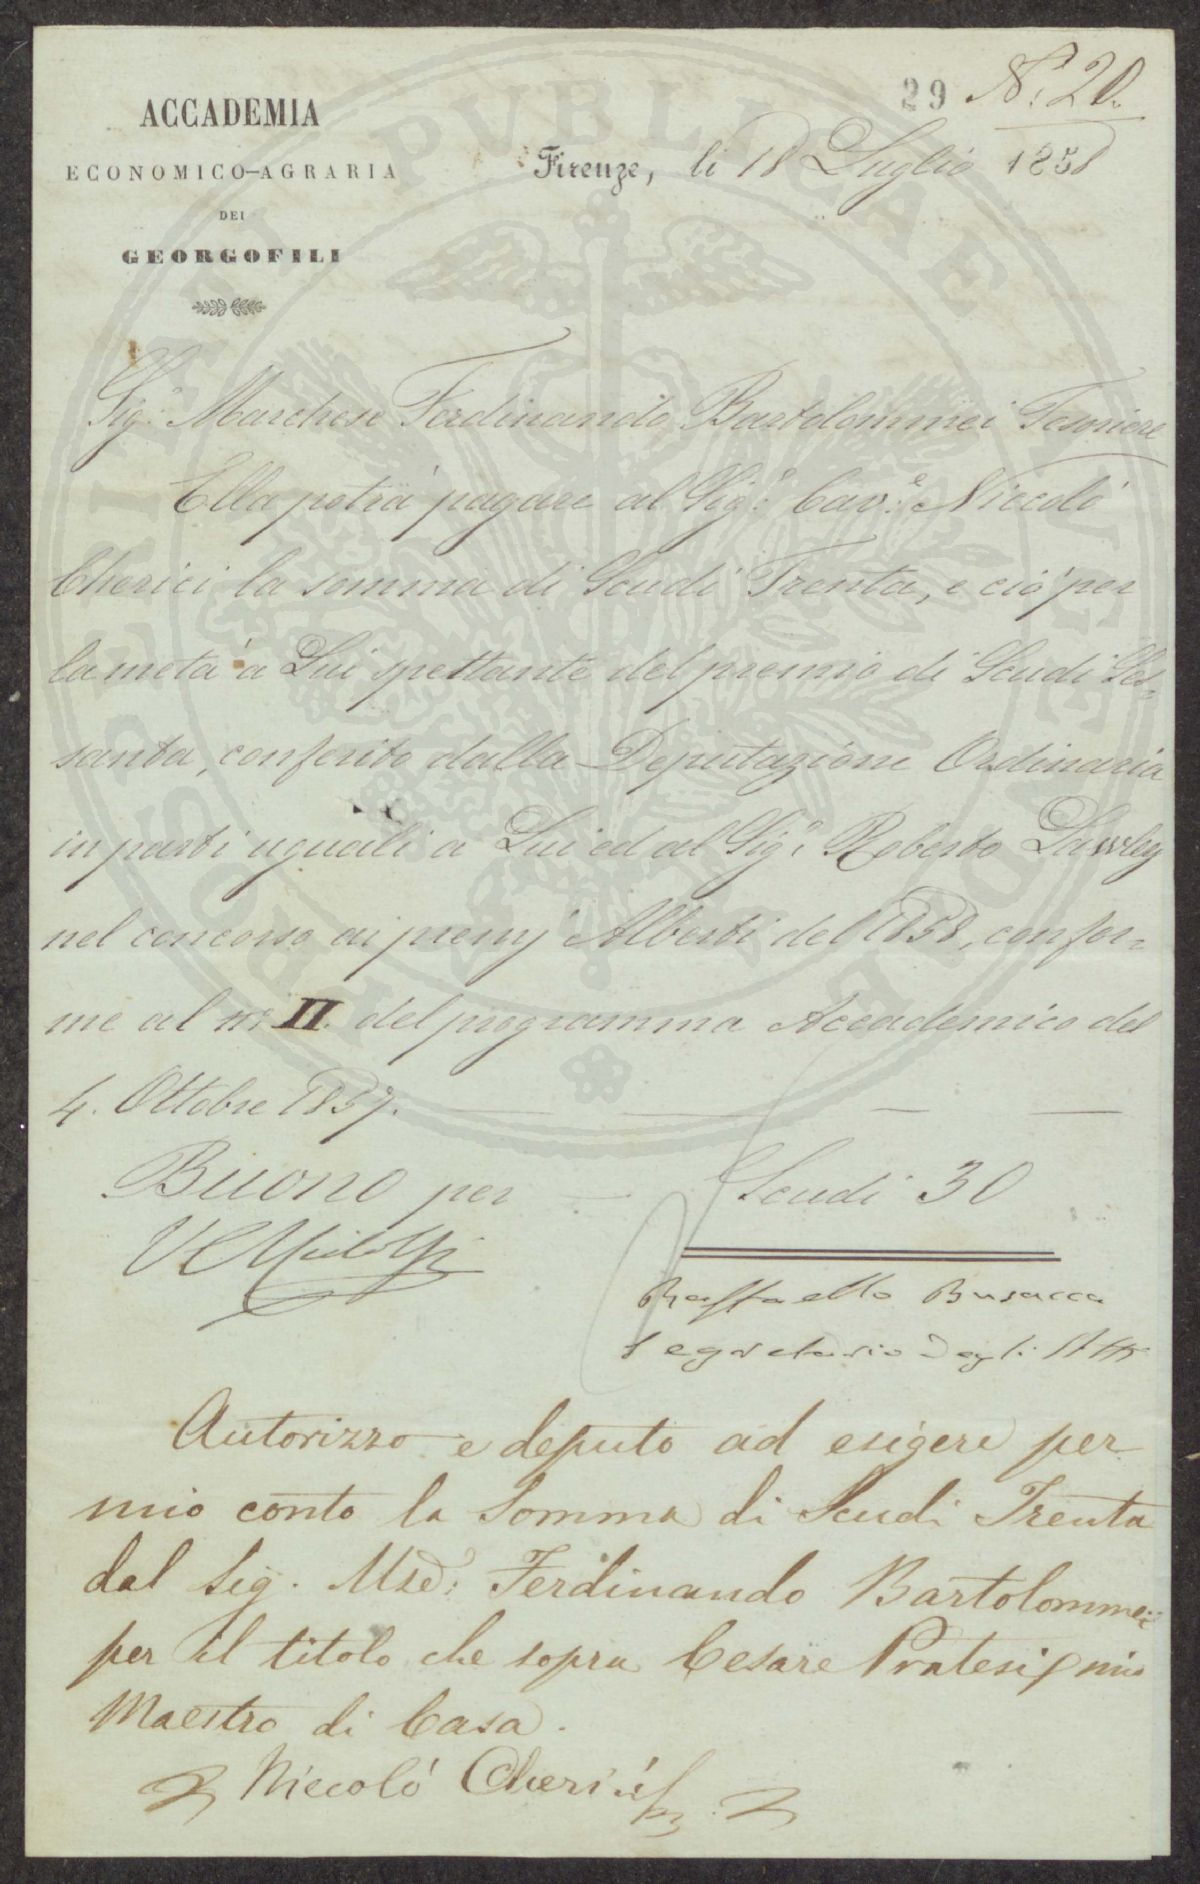 29 N.° 20.
ACCADEMIA
ECONOMICO-AGRARIA
DEI
GEORGOFILI
Firenze, li 18 Luglio 1858
Sig.r Marchese Ferdinando Bartolommei Tesoriere
Ella potrà pagare al Sig.r Cav.e Niccolò
Cherici la somma di Scudi Trenta, e ciò per
la metà a Lui spettante del premio di Scudi Ses=
santa, conferito dalla Deputazione Ordinaria
in parti uguali a Lui ed al Sig.r Roberto Lawley
nel concorso ai premj Alberti del 1858, confor=
me al n.° II. del programma Accademico del
4. Ottobre 1857.
Buono per Scudi 30
Raffaello Busacca
Segretario degli Atti
Autorizzo e deputo ad esigere per
mio conto la Somma di Scudi Trenta
dal Sig. Ferdinando Bartolommei
per il titolo che sopra Cesare Pratesi mio
Maestro di Casa.
Niccolò Cherici